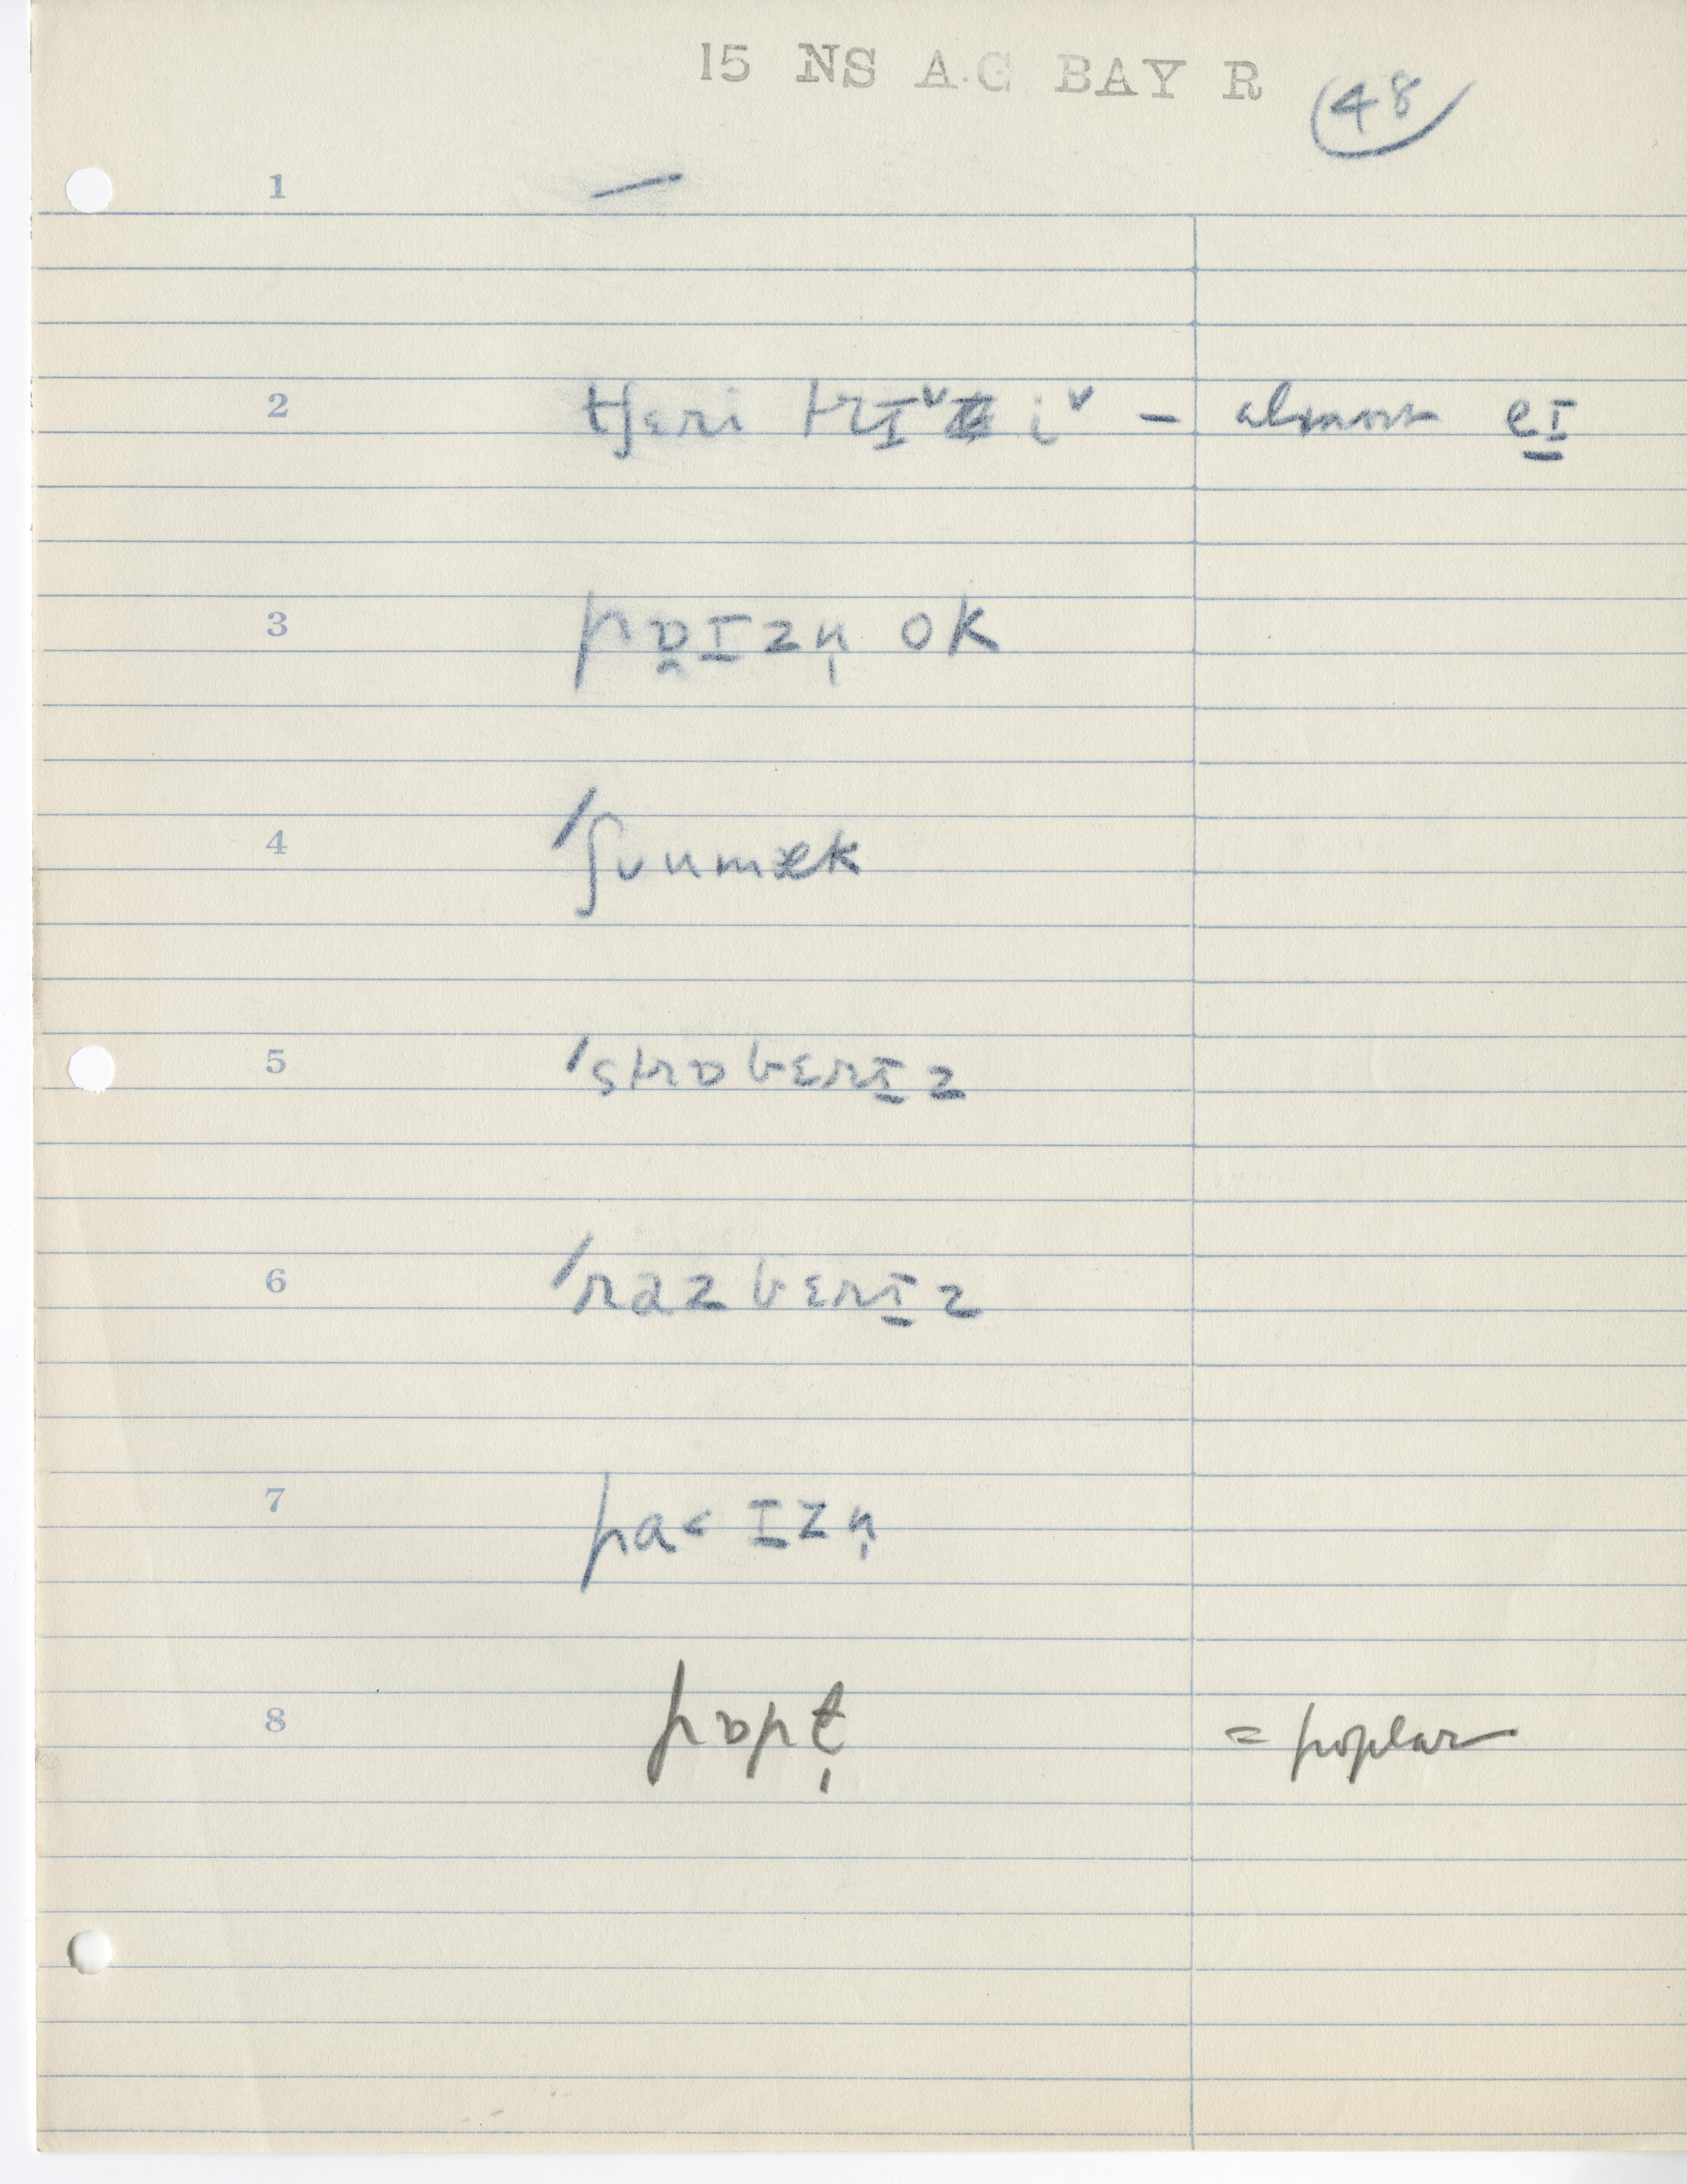 15 NS A.G BAY R (48)
1 —
2 tʃɛri trɪ˅ i˅ – almost eɪ
3 pɒ̯ɪzn̩ oK
4 ˈʃumæk
5 ˈstrɒbɛrɪ̱z
6 ˈrazbɛrɪ̱z
7 pɑ< ɪzn̩
8 pɒpɫ̩ = poplar